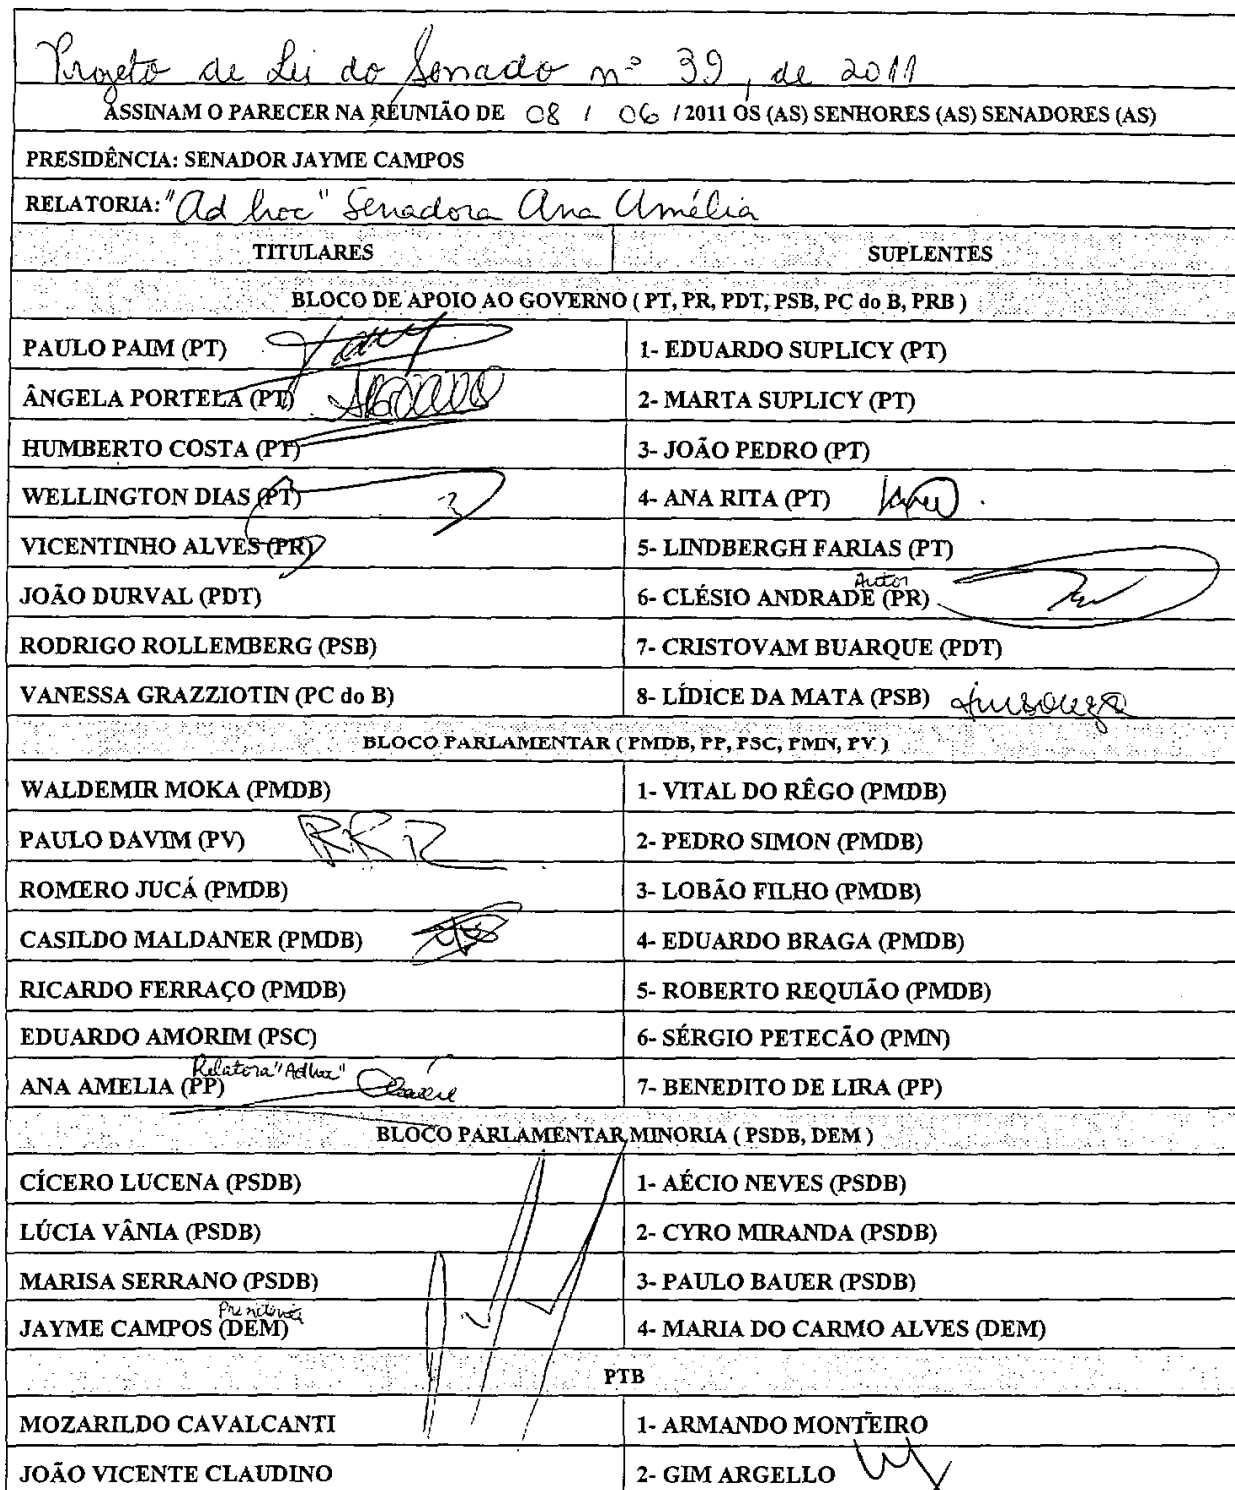 Projeto de Lei do Senado nº 39, de 2011
ASSINAM O PARECER NA REUNIÃO DE 08 / 06 / 2011 OS (AS) SENHORES (AS) SENADORES (AS)
PRESIDÊNCIA: SENADOR JAYME CAMPOS
RELATORIA: "Ad hoc" Senadora Ana Amélia
TITULARES SUPLENTES
BLOCO DE APOIO AO GOVERNO ( PT, PR, PDT, PSB, PC do B, PRB )
PAULO PAIM (PT) 1- EDUARDO SUPLICY (PT)
ÂNGELA PORTELA (PT) 2- MARTA SUPLICY (PT)
HUMBERTO COSTA (PT) 3- JOÃO PEDRO (PT)
WELLINGTON DIAS (PT) 4- ANA RITA (PT)
VICENTINHO ALVES (PR) 5- LINDBERGH FARIAS (PT)
Autor
JOÃO DURVAL (PDT) 6- CLÉSIO ANDRADE (PR)
RODRIGO ROLLEMBERG (PSB) 7- CRISTOVAM BUARQUE (PDT)
VANESSA GRAZZIOTIN (PC do B) 8- LÍDICE DA MATA (PSB)
BLOCO PARLAMENTAR ( PMDB, PP, PSC, PMN, PV )
WALDEMIR MOKA (PMDB) 1- VITAL DO RÊGO (PMDB)
PAULO DAVIM (PV) 2- PEDRO SIMON (PMDB)
ROMERO JUCÁ (PMDB) 3- LOBÃO FILHO (PMDB)
CASILDO MALDANER (PMDB) 4- EDUARDO BRAGA (PMDB)
RICARDO FERRAÇO (PMDB) 5- ROBERTO REQUIÃO (PMDB)
EDUARDO AMORIM (PSC) 6- SÉRGIO PETECÃO (PMN)
Relatora "Ad hoc"
ANA AMELIA (PP) 7- BENEDITO DE LIRA (PP)
BLOCO PARLAMENTAR MINORIA ( PSDB, DEM )
CÍCERO LUCENA (PSDB) 1- AÉCIO NEVES (PSDB)
LÚCIA VÂNIA (PSDB) 2- CYRO MIRANDA (PSDB)
MARISA SERRANO (PSDB) 3- PAULO BAUER (PSDB)
JAYME CAMPOS (DEM) 4- MARIA DO CARMO ALVES (DEM)
PTB
MOZARILDO CAVALCANTI 1- ARMANDO MONTEIRO
JOÃO VICENTE CLAUDINO 2- GIM ARGELLO